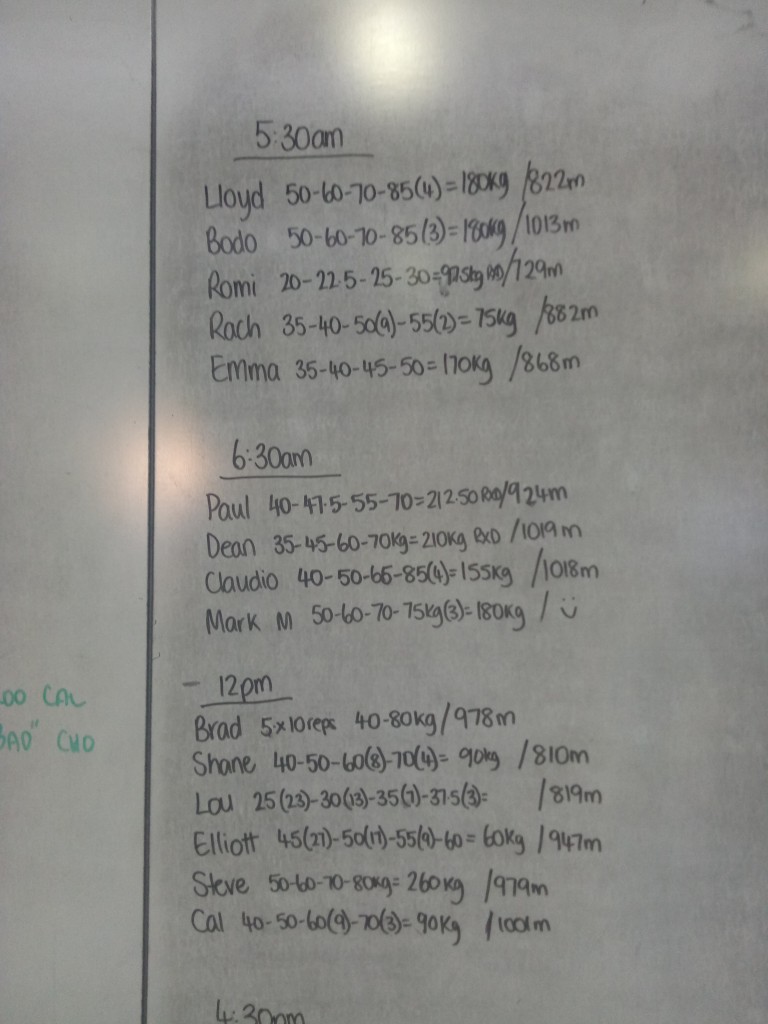 5:30am
Lloyd 50-60-70-85(4)=180kg /822m
Bodo 50-60-70-85(3)=180kg /1013m
Romi 20-22.5-25-30=97.5kg RXD/729m
Rach 35-40-50(9)-55(2)=75kg /882m
Emma 35-40-45-50=170kg /868m
6:30am
Paul 40-47.5-55-70=212.50 RXD/924m
Dean 35-45-60-70kg=210kg RXD /1019m
Claudio 40-50-65-85(4)=155kg /1018m
Mark M 50-60-70-75kg(3)=180kg /
- 12pm
Brad 5x10reps 40-80kg/978m
Shane 40-50-60(8)-70(4)= 90kg /810m
Lou 25(23)-30(13)-35(7)-37.5(3)= /819m
Elliott 45(27)-50(17)-55(9)-60=60kg /947m
Steve 50-60-70-80kg=260kg /979m
Cal 40-50-60(9)-70(3)=90kg /1001m
00 CAL
BAD" CHO
4:30pm